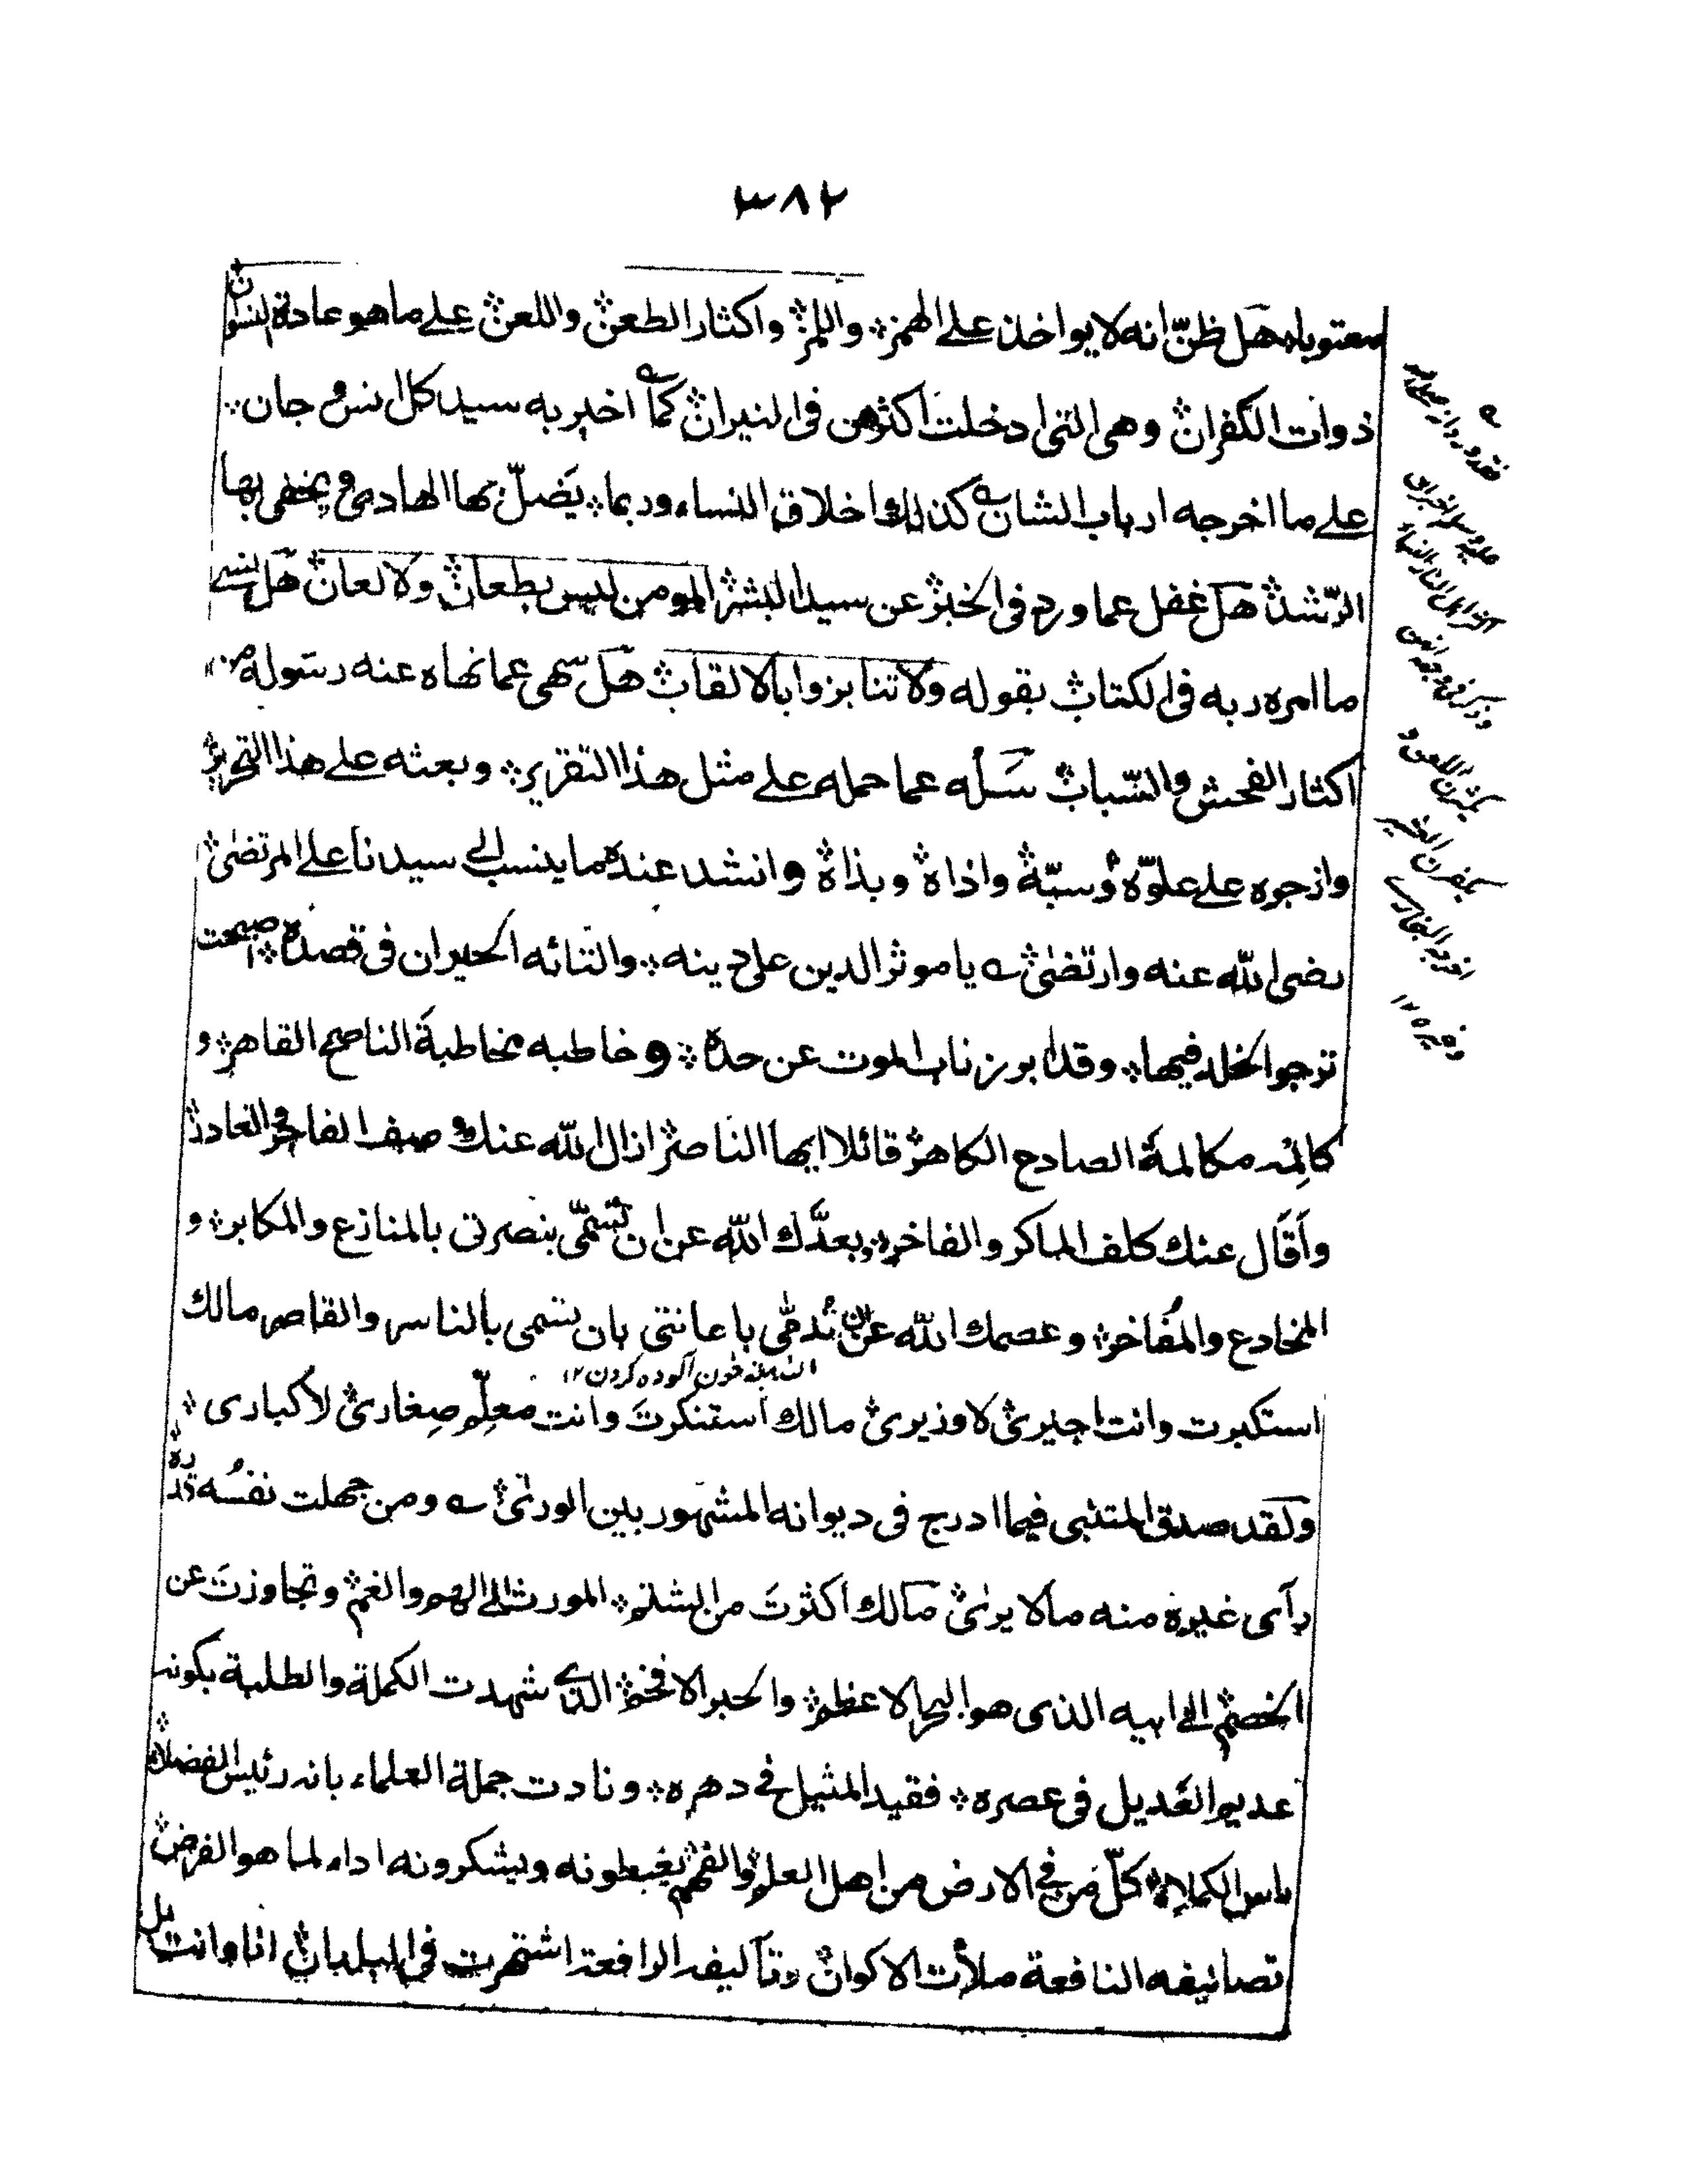 ٣٨٢
معتوباه هل ظنّ انه لا يواخذ علے الهمز واللمز واكثار الطعن واللعن علے ما هو عادة النسوان
ذوات الكفران وهى التى ادخلت اكثرهن فى النيران كما اخبر به سيد كل انس و جان
علے ما اخرجه ارباب الشان كذلك اخلاق النساء وربما يَضلّ بها الهادى و يخفى بها
الرّشد هل غفل عما ورد فى الخبر عن سيد البشر المومن ليس بطعان ولا لعان هل نسے
ما امره ربه فى الكتاب بقوله ولا تنابزوا بالالقاب هل سهى عما نهاه عنه رسوله من
اكثار الفحش والسّباب سَله عما حمله علے مثل هذا التقرير وبعثه علے هذا التحرير
وازجره علے علوّه وسبّة واذاة وبذاة وانشد عنده ما ينسب الے سيدنا علے المرتضىٰ
رضى الله عنه وارتضىٰ يا موثر الدين على دينه والتائه الحيران فى قصده اصبحت
ترجو الخلد فيها وقد ابرز ناب الموت عن حده و خاطبه مخاطبةَ الناصح القاهر و
كالِمْه مكالمةَ الصادح الكاهر قائلا ايها الناصر ازال الله عنك وصف الفاجر والغادر
وأقَال عنك كلف الماكر والفاخر وبعدَّك الله عن ان تسَمّى بنصرتى بالمنازع والمكابر و
المخادع والمُفاخر وعصمك الله عن ان تُدمّى باعانتى بان تسمى بالناسر والقاصر مالك
التدمية خون آلوده كردن ١٢
استكبرت وانت اجيرى لا وزيرى مالك استنكرتَ وانت معلِّم صِغارى لا كبارى
ولقد صدق المتنبى فيما ادرج فى ديوانه المشهور بين الورىٰ ومن جهلت نفسُه قدره
رآى غيره منه مالا يرىٰ مالك اكثرتَ من الشتم المورث الے الهم والغم وتجاوزتَ عن
الخصم الے ابيه الذى هو البحر الاعظم والحبر الافخم الذے شهدت الكملة والطلبة بكونه
عديم العَديل فى عصره فقيد المثيل فے دهره و نادت جملة العلماء بانه رئيس الفضلاء
راس الكملاء كلّ مَن فے الارض من اهل العلم والفهم يغبطونه ويشكرونه اداء لما هو الفرض
تصانيفه النافعة ملأت الاكوان وتآليفه الرافعة اشتهرت فى البلدان انا وانت بل